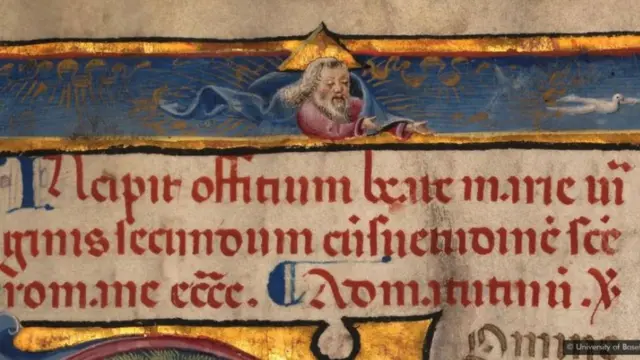 Incipit offitium beate marie uir
ginis secundum cōsuetudinē scē
romane eccē. ¶ Ad matutinū. ℣
Omine
© University of Bose